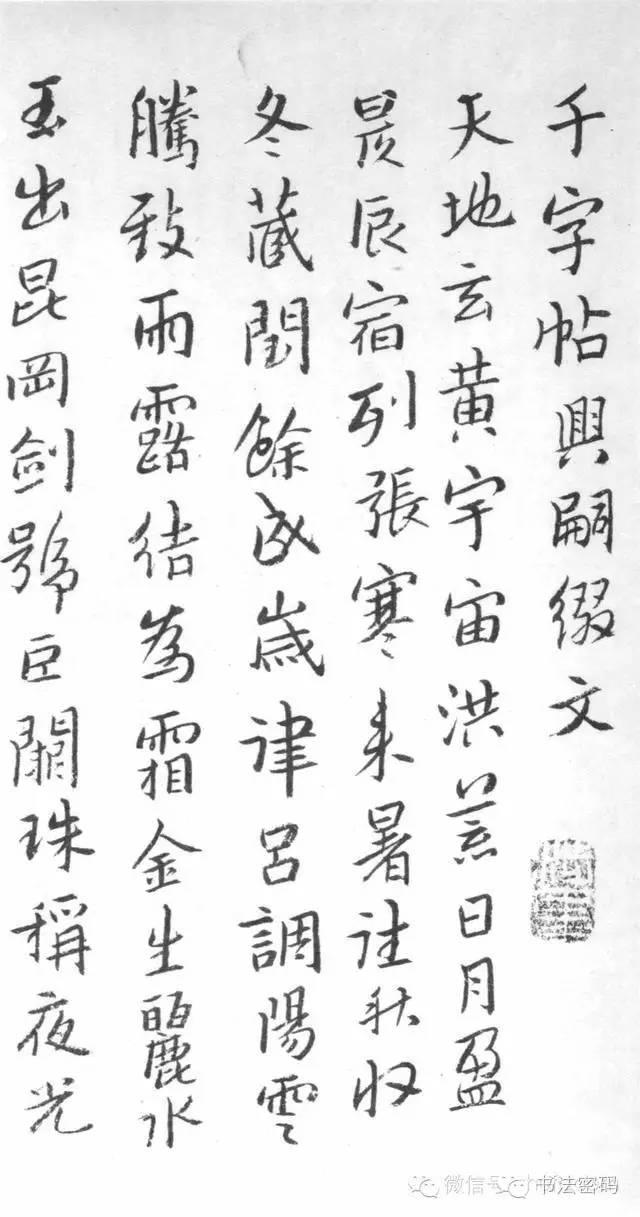 千字帖興嗣綴文
天地玄黃宇宙洪荒日月盈
昃辰宿列張寒来暑往秋收
冬蔵閏餘成歲律呂調陽雲
騰致雨露結為霜金生麗水
玉出崑岡劍號巨闕珠稱夜光
微信号
书法密码